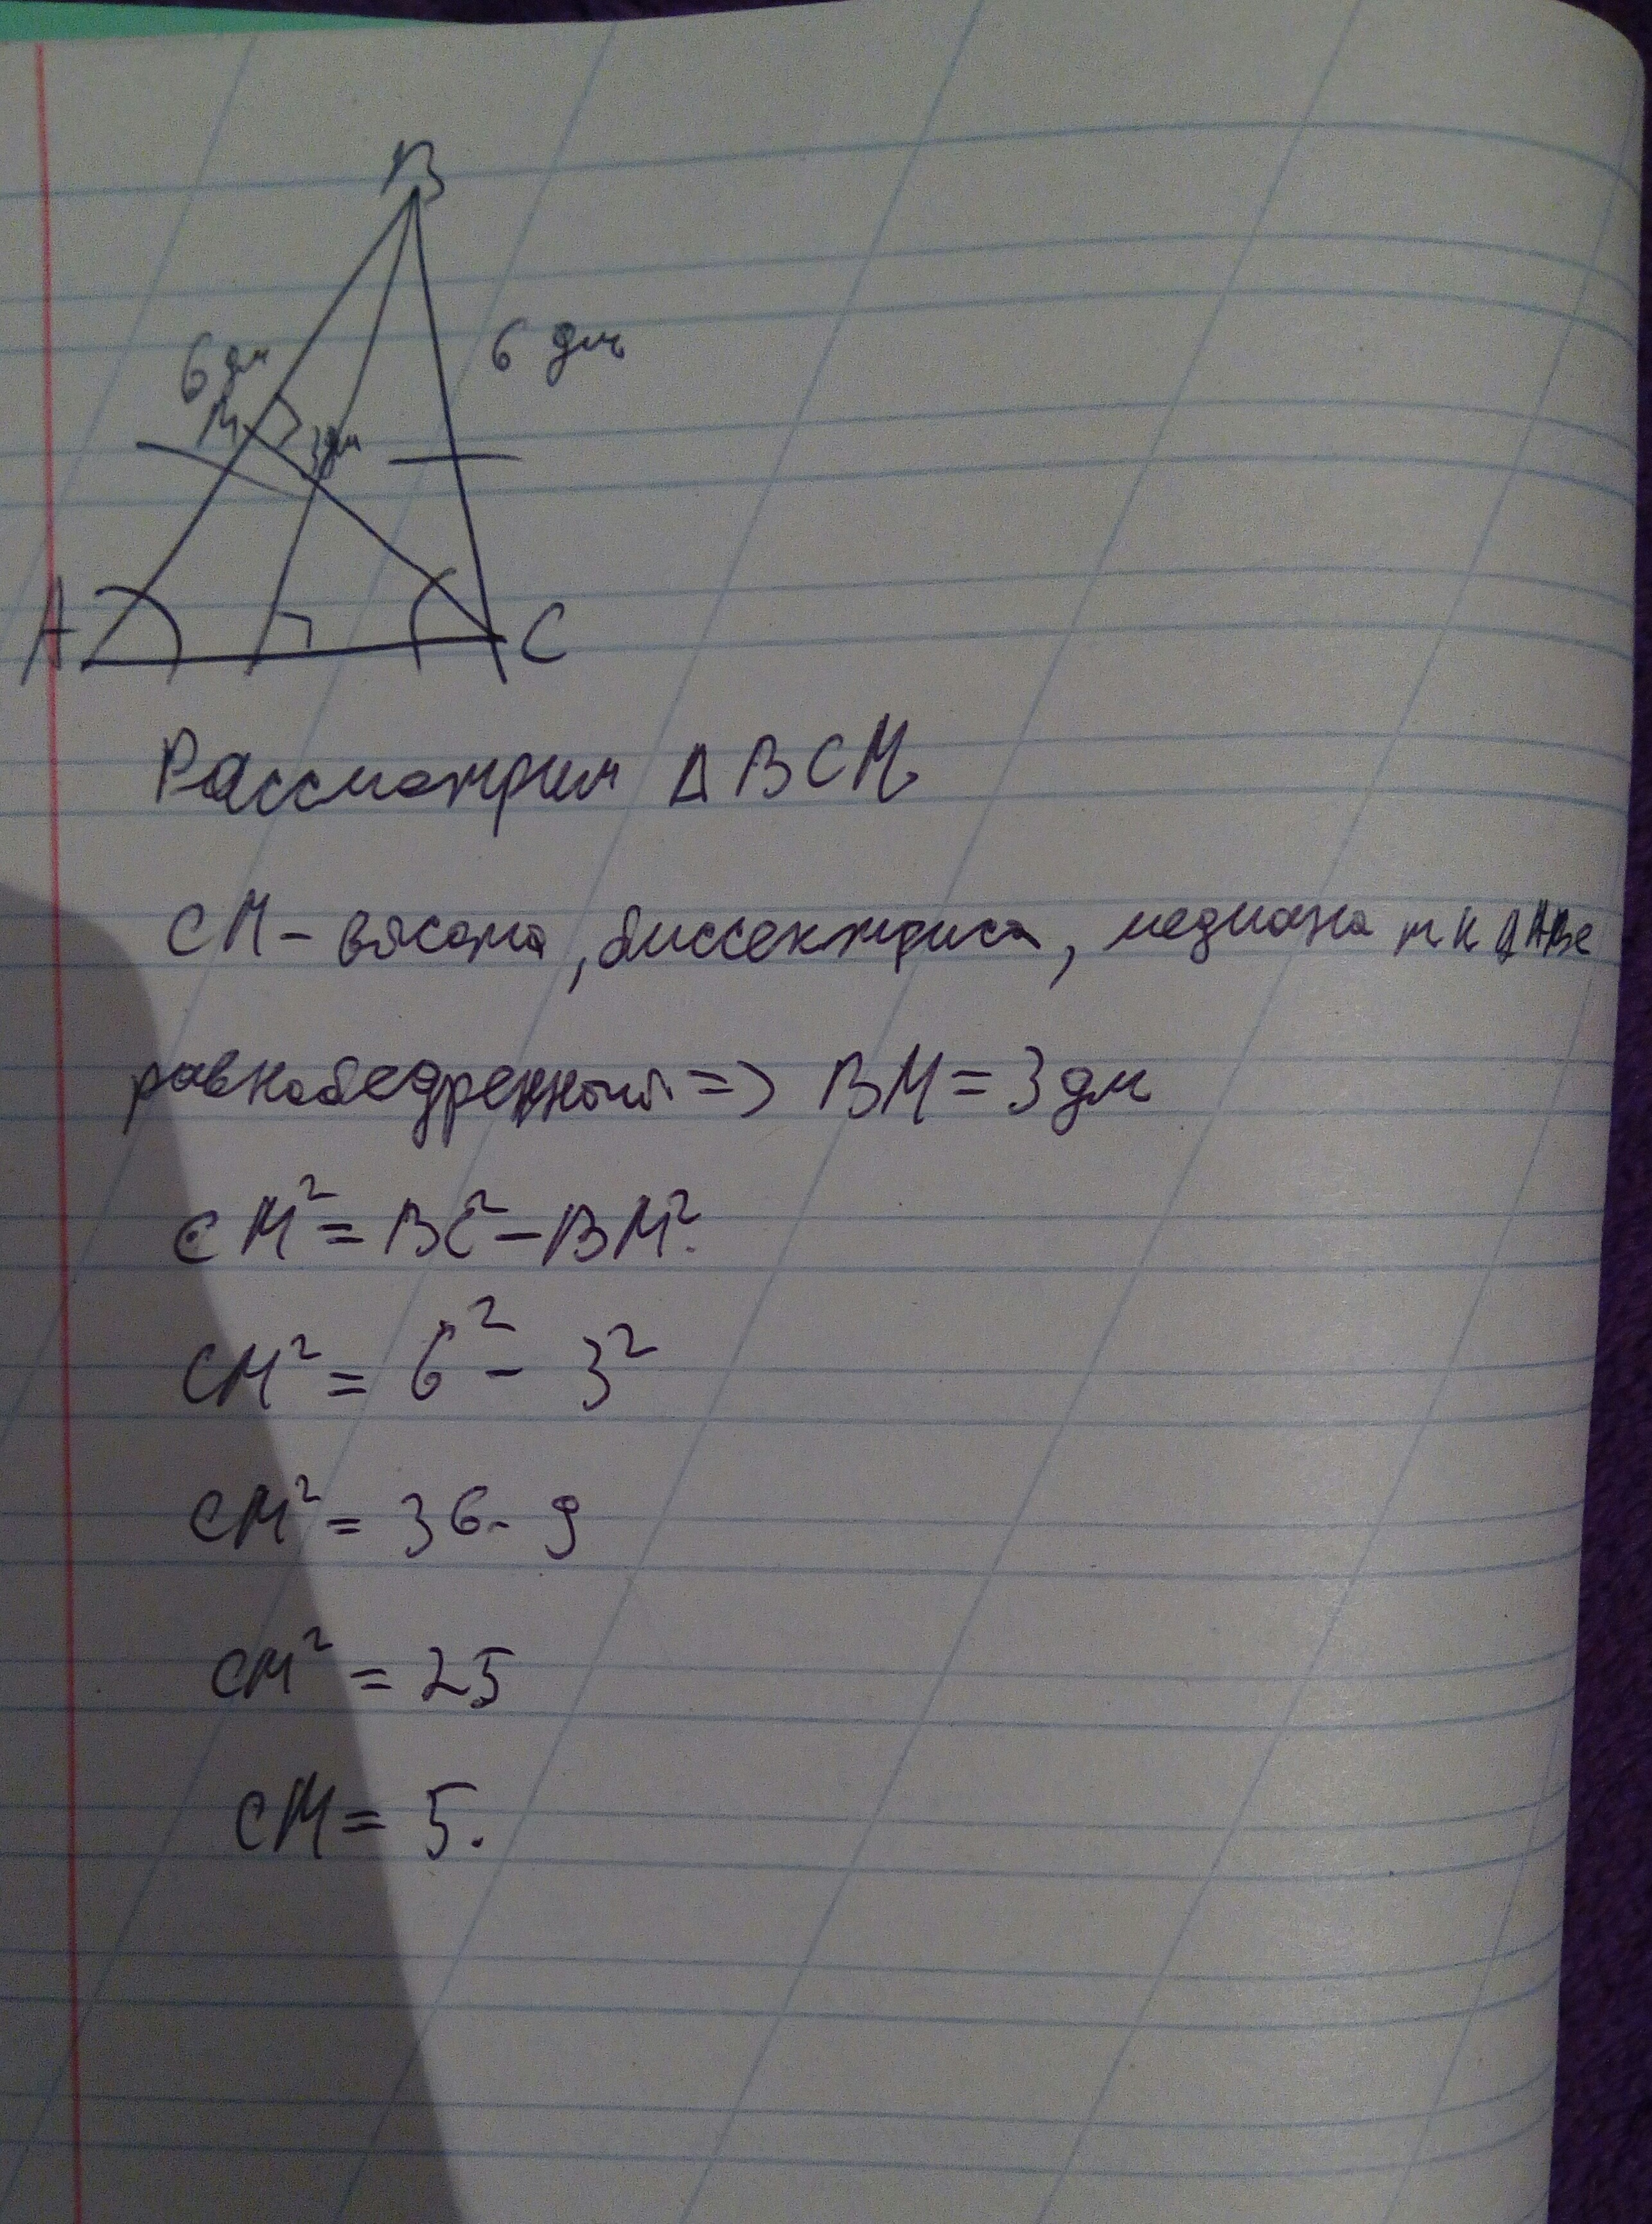 B
6 дм
6 дм
M
3дм
A
C
Рассмотрим Δ BCM
CM - высота, биссектриса, медиана т к Δ ABC
равнобедренный => BM = 3 дм
CM² = BC² - BM².
CM² = 6² - 3²
CM² = 36 - 9
CM² = 25
CM = 5.